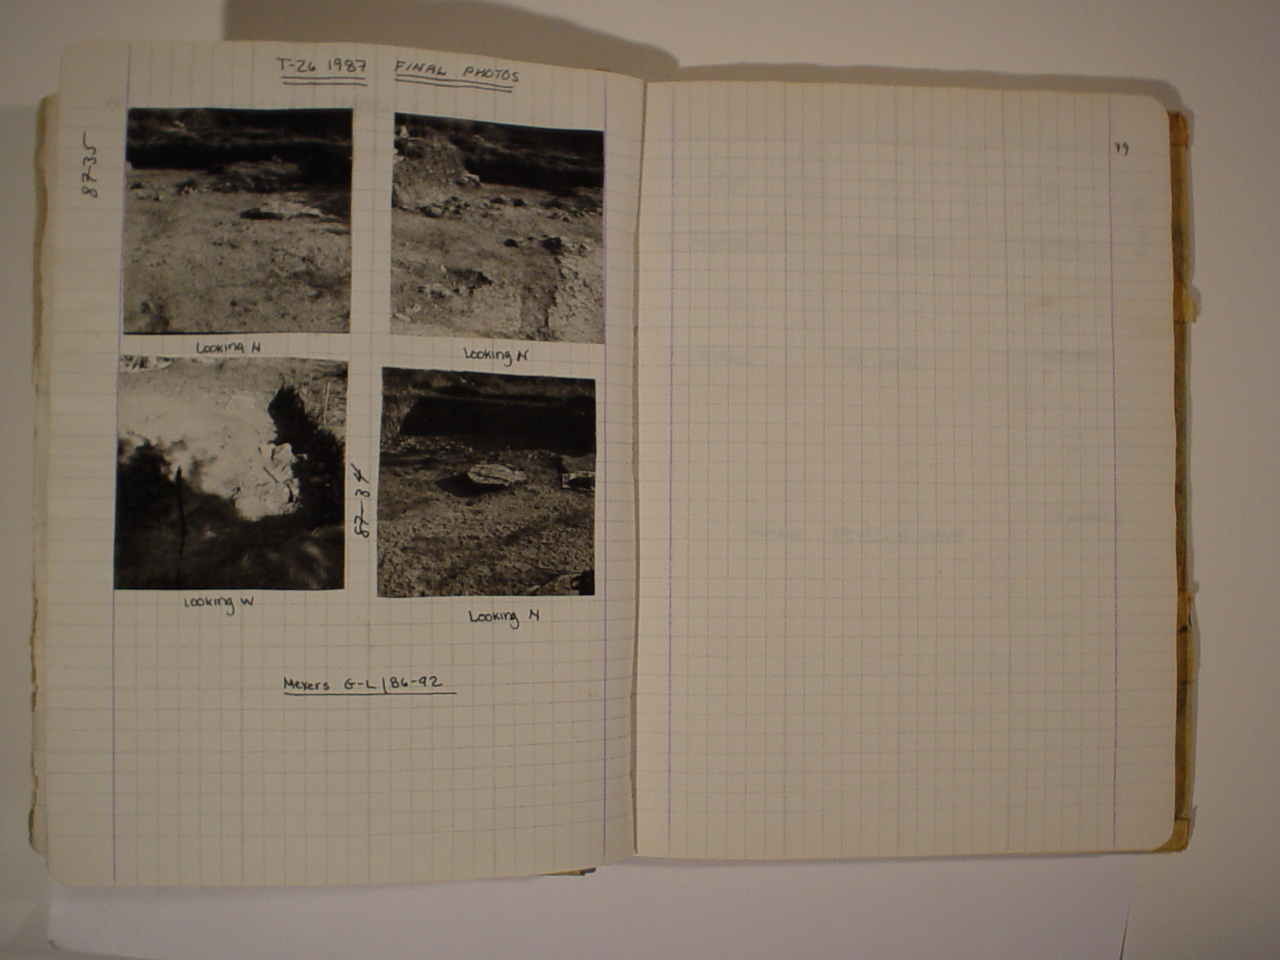 T-26 1987 FINAL PHOTOS
87-35
Looking N
Looking N
87-34
Looking W
Looking N
Meyers G-L/86-92
79